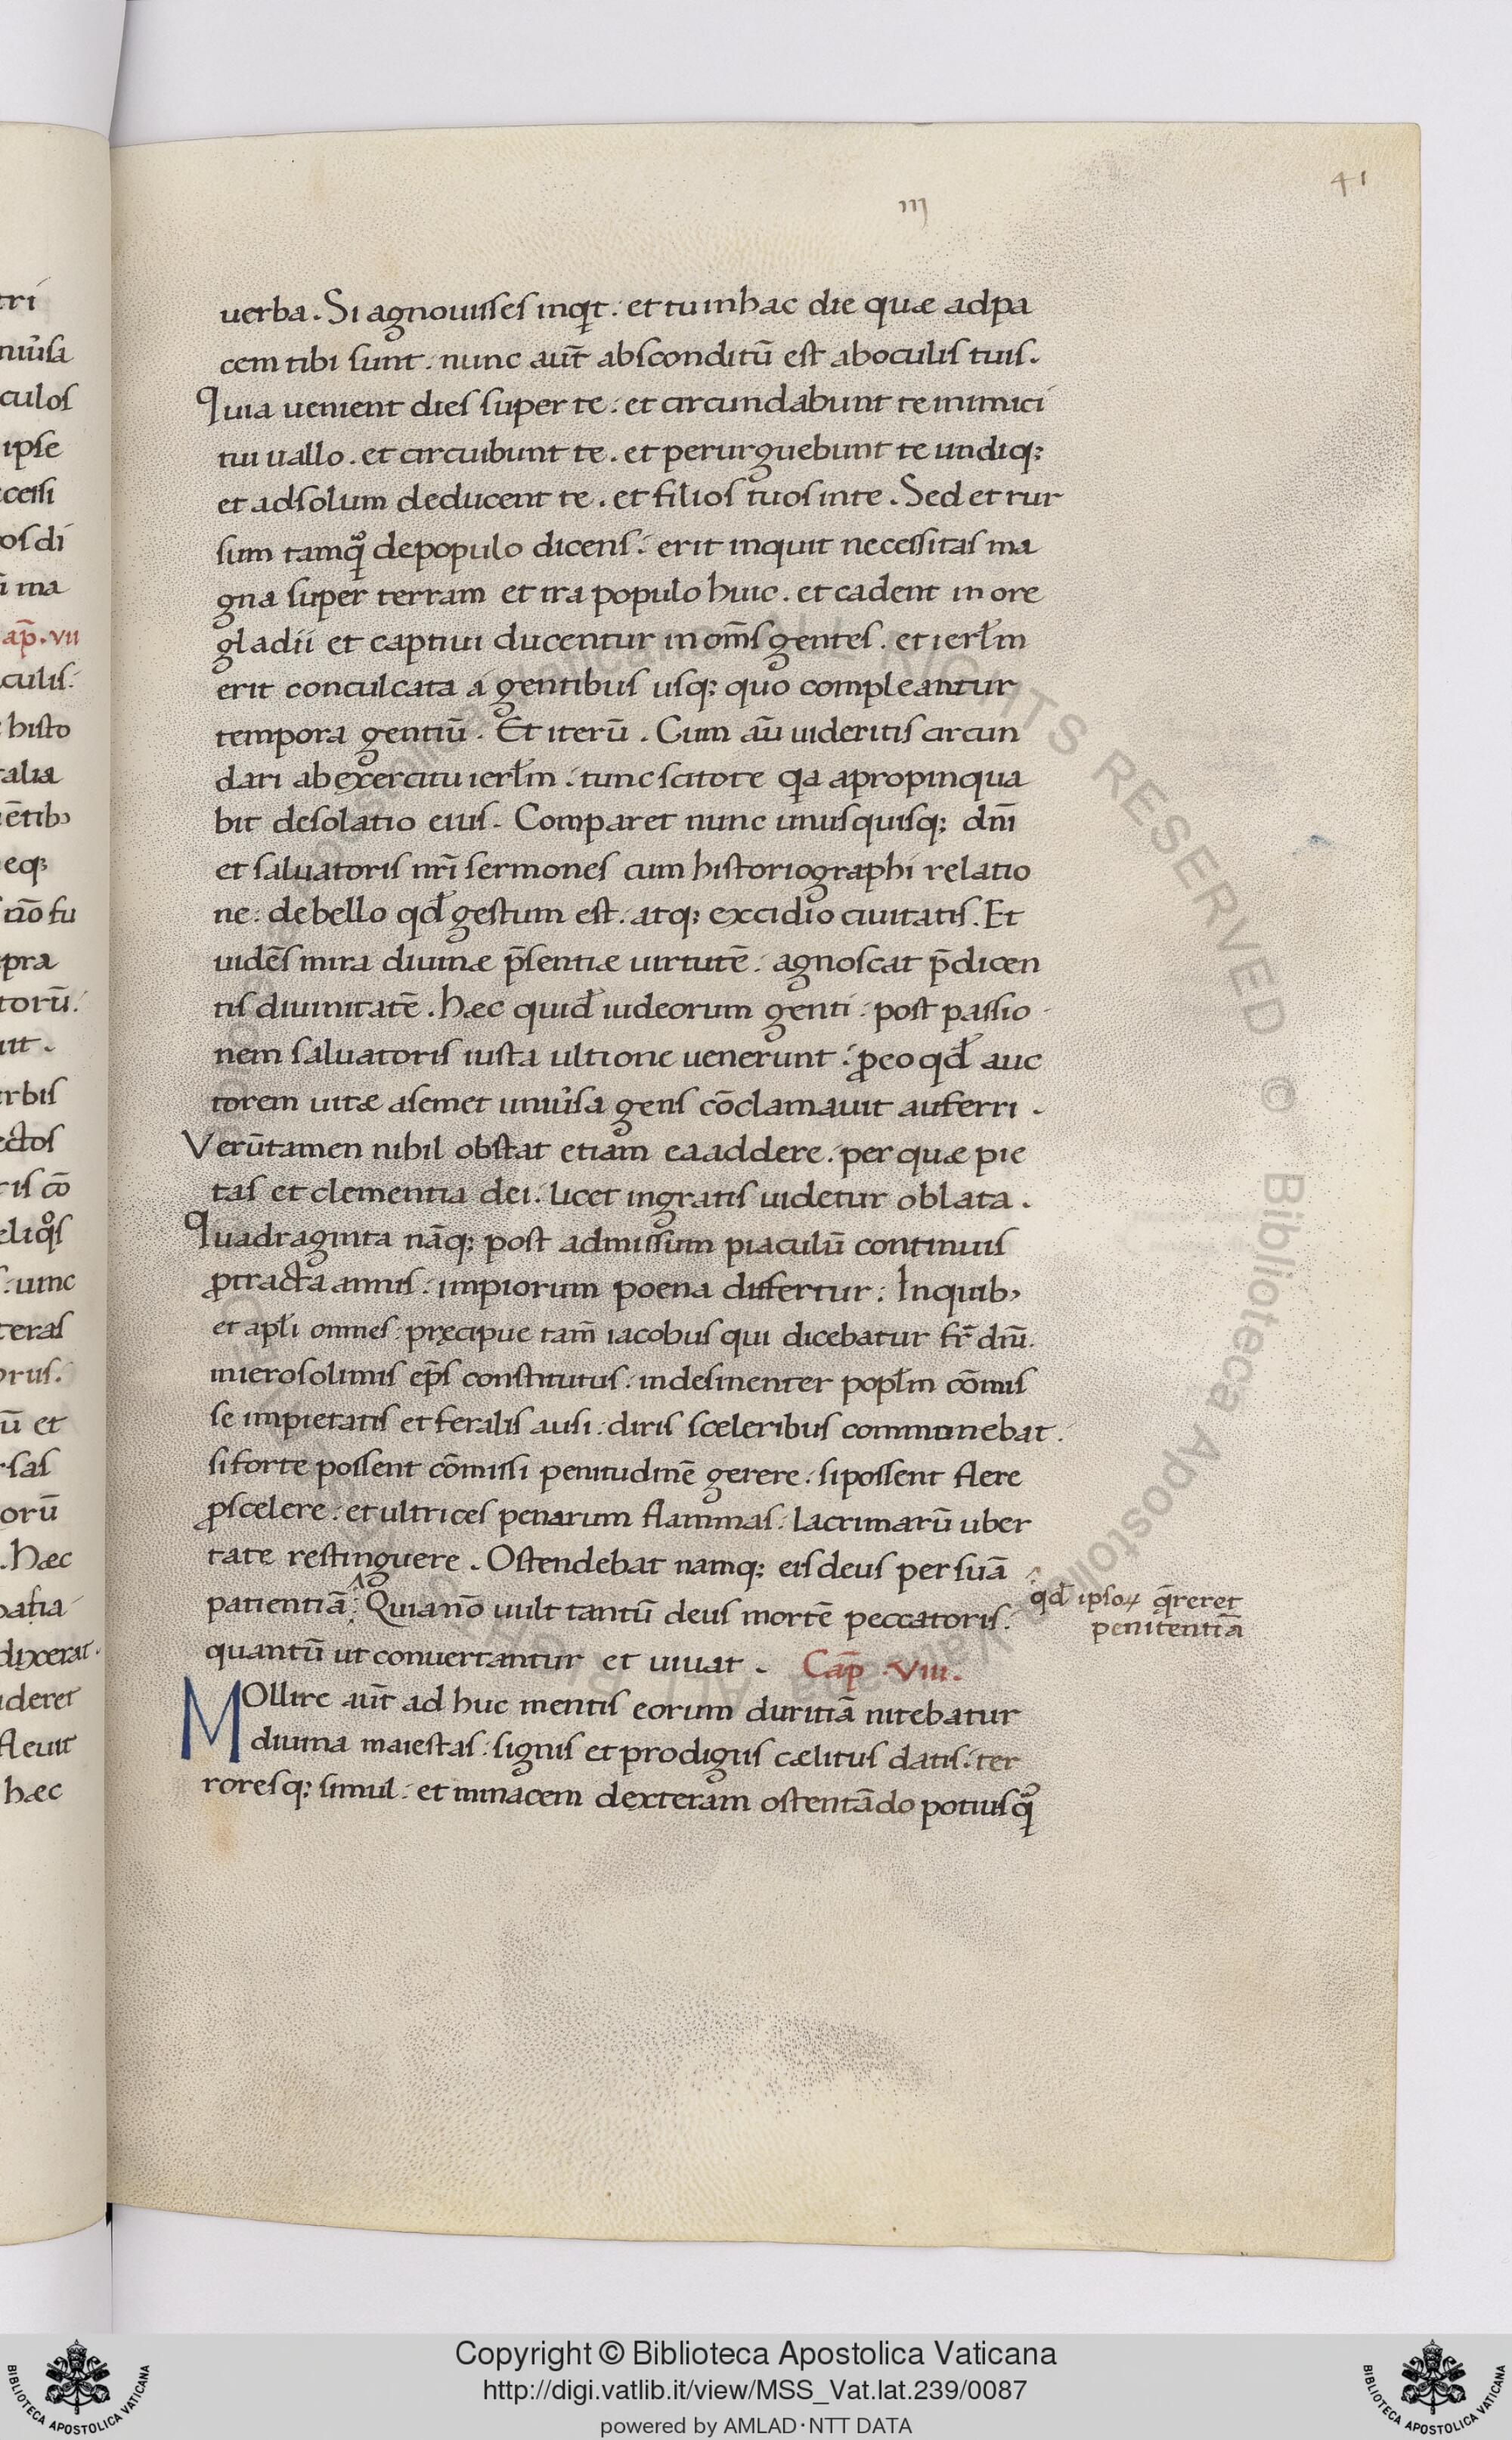 41
III
uerba. Si agnouisses inq̇t: et tu in hac die quæ ad pa
cem tibi sunt: nunc aūt absconditū est ab oculis tuis.
Quia uenient dies super te: et circundabunt te inimici
tui uallo. et circuibunt te. et perurguebunt te undiq;
et ad solum deducent te. et filios tuos in te. Sed et rur
sum tamq̊ de populo dicens: erit inquit necessitas ma
gna super terram et ira populo huic. et cadent in ore
gladii et captiui ducentur in om̄s gentes. et ierl̄m
erit conculcata á gentibus usq; quo compleantur
tempora gentiū. Et iterū. Cum aū uideritis circun
dari ab exercitu ierl̄m: tunc scitote qa apropinqua
bit desolatio eius. Comparet nunc unusquisq; dn̄i
et saluatoris nr̄i sermones cum historiographi relatio
ne: de bello qđ gestum est. atq; excidio ciuitatis. Et
uidēs mira diuinæ p̄sentiæ uirtutē: agnoscat p̄dicen
tis diuinitatē. hæc quiđ iudeorum genti: post passio
nem saluatoris iusta ultione uenerunt: ꝓ eo qđ auc
torem uitæ a semet uniu̓sa gens cōclamauit auferri.
Verūtamen nihil obstat etiam ea addere: per quæ pie
tas et clementia dei: licet ingratis uidetur oblata.
Quadraginta nāq; post admissum piaculū continuis
ꝓtracta annis: impiorum poena differtur: In quib,
et apl̄i omnes: pręcipue tam̄ iacobus qui dicebatur fr̄ dn̄i.
in ierosolimis ep̄s constitutus: indesinenter popl̄m cōmis
se impietatis et feralis ausi: diris sceleribus commonebat.
si forte possent cōmissi penitudinē gerere: si possent flere
ꝓ scelere: et ultrices penarum flammas: lacrimarū uber
tate restinguere. Ostendebat namq; eis deus per suā
patientiā: Quia nō uult tantū deus mortē peccatoris:
qđ ipsoꝝ q̄reret
penitentiā
quantū ut conuertantur et uiuat. Cap̄. VIII.
MOllire aūt ad huc mentis eorum duritiā nitebatur
diuina maiestas: signis et prodigiis cælitus datis: ter
roresq; simul: et minacem dexteram ostentādo potius q̊
tri
niu̓sa
culos
ipse
cessi
os di
ma
ap̄. VII
culis:
histo
alia
ētib,
eq;
nō fu
pra
torū:
rbis
ectos
ris cō
eliq̊s
: unc
teras
orus.
ū et
rsas
orū
. hæc
dixerat.
ideret
fleuit
hæc
Copyright © Biblioteca Apostolica Vaticana
http://digi.vatlib.it/view/MSS_Vat.lat.239/0087
powered by AMLAD·NTT DATA
BIBLIOTECA APOSTOLICA VATICANA
BIBLIOTECA APOSTOLICA VATICANA